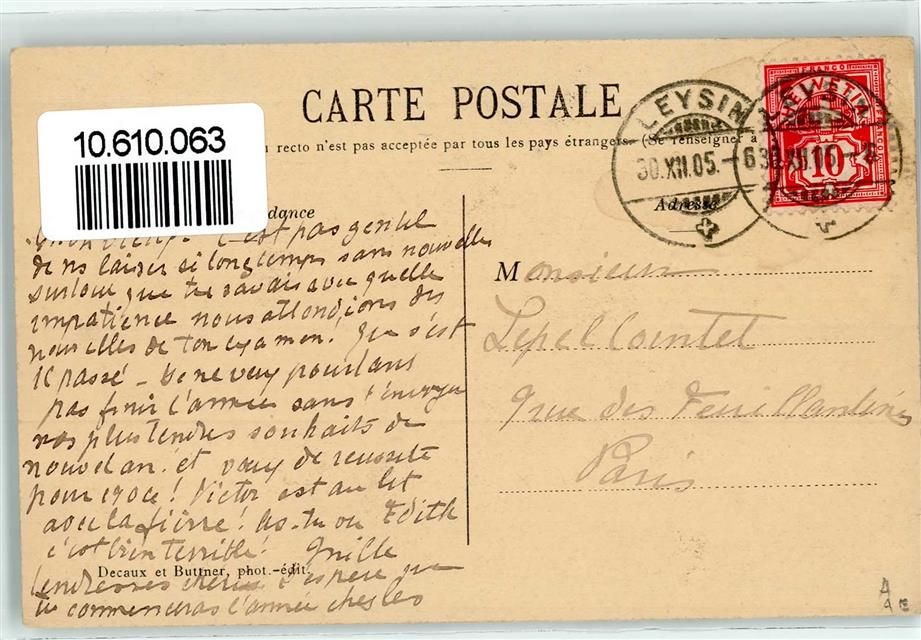 CARTE POSTALE
10.610.063
u recto n'est pas acceptée par tous les pays étrangers. (Se renseigner à
LEYSIN
30.XII.05.-6
FRANCO
HELVETIA
10
dance
Adresse
c'est pas gentil
de ns laisser si longtemps sans nouvelles
surtout que tu savais avec quelle
impatience nous attendions des
nouvelles de ton examen! Que s'est
il passé – Je ne veux pourtant
pas finir l'année sans t'envoyer
nos plus tendres souhaits de
nouvel an! et voeux de réussite
pour 1906! Victor est au lit
avec la fièvre! As-tu vu Edith
c'est bien terrible! Mille
tendresses chéri j'espère que
tu commenceras l'année chez les
Decaux et Buttner, phot.-édit.
Monsieur
Lepel Cointet
9 rue des Feuillantines
Paris